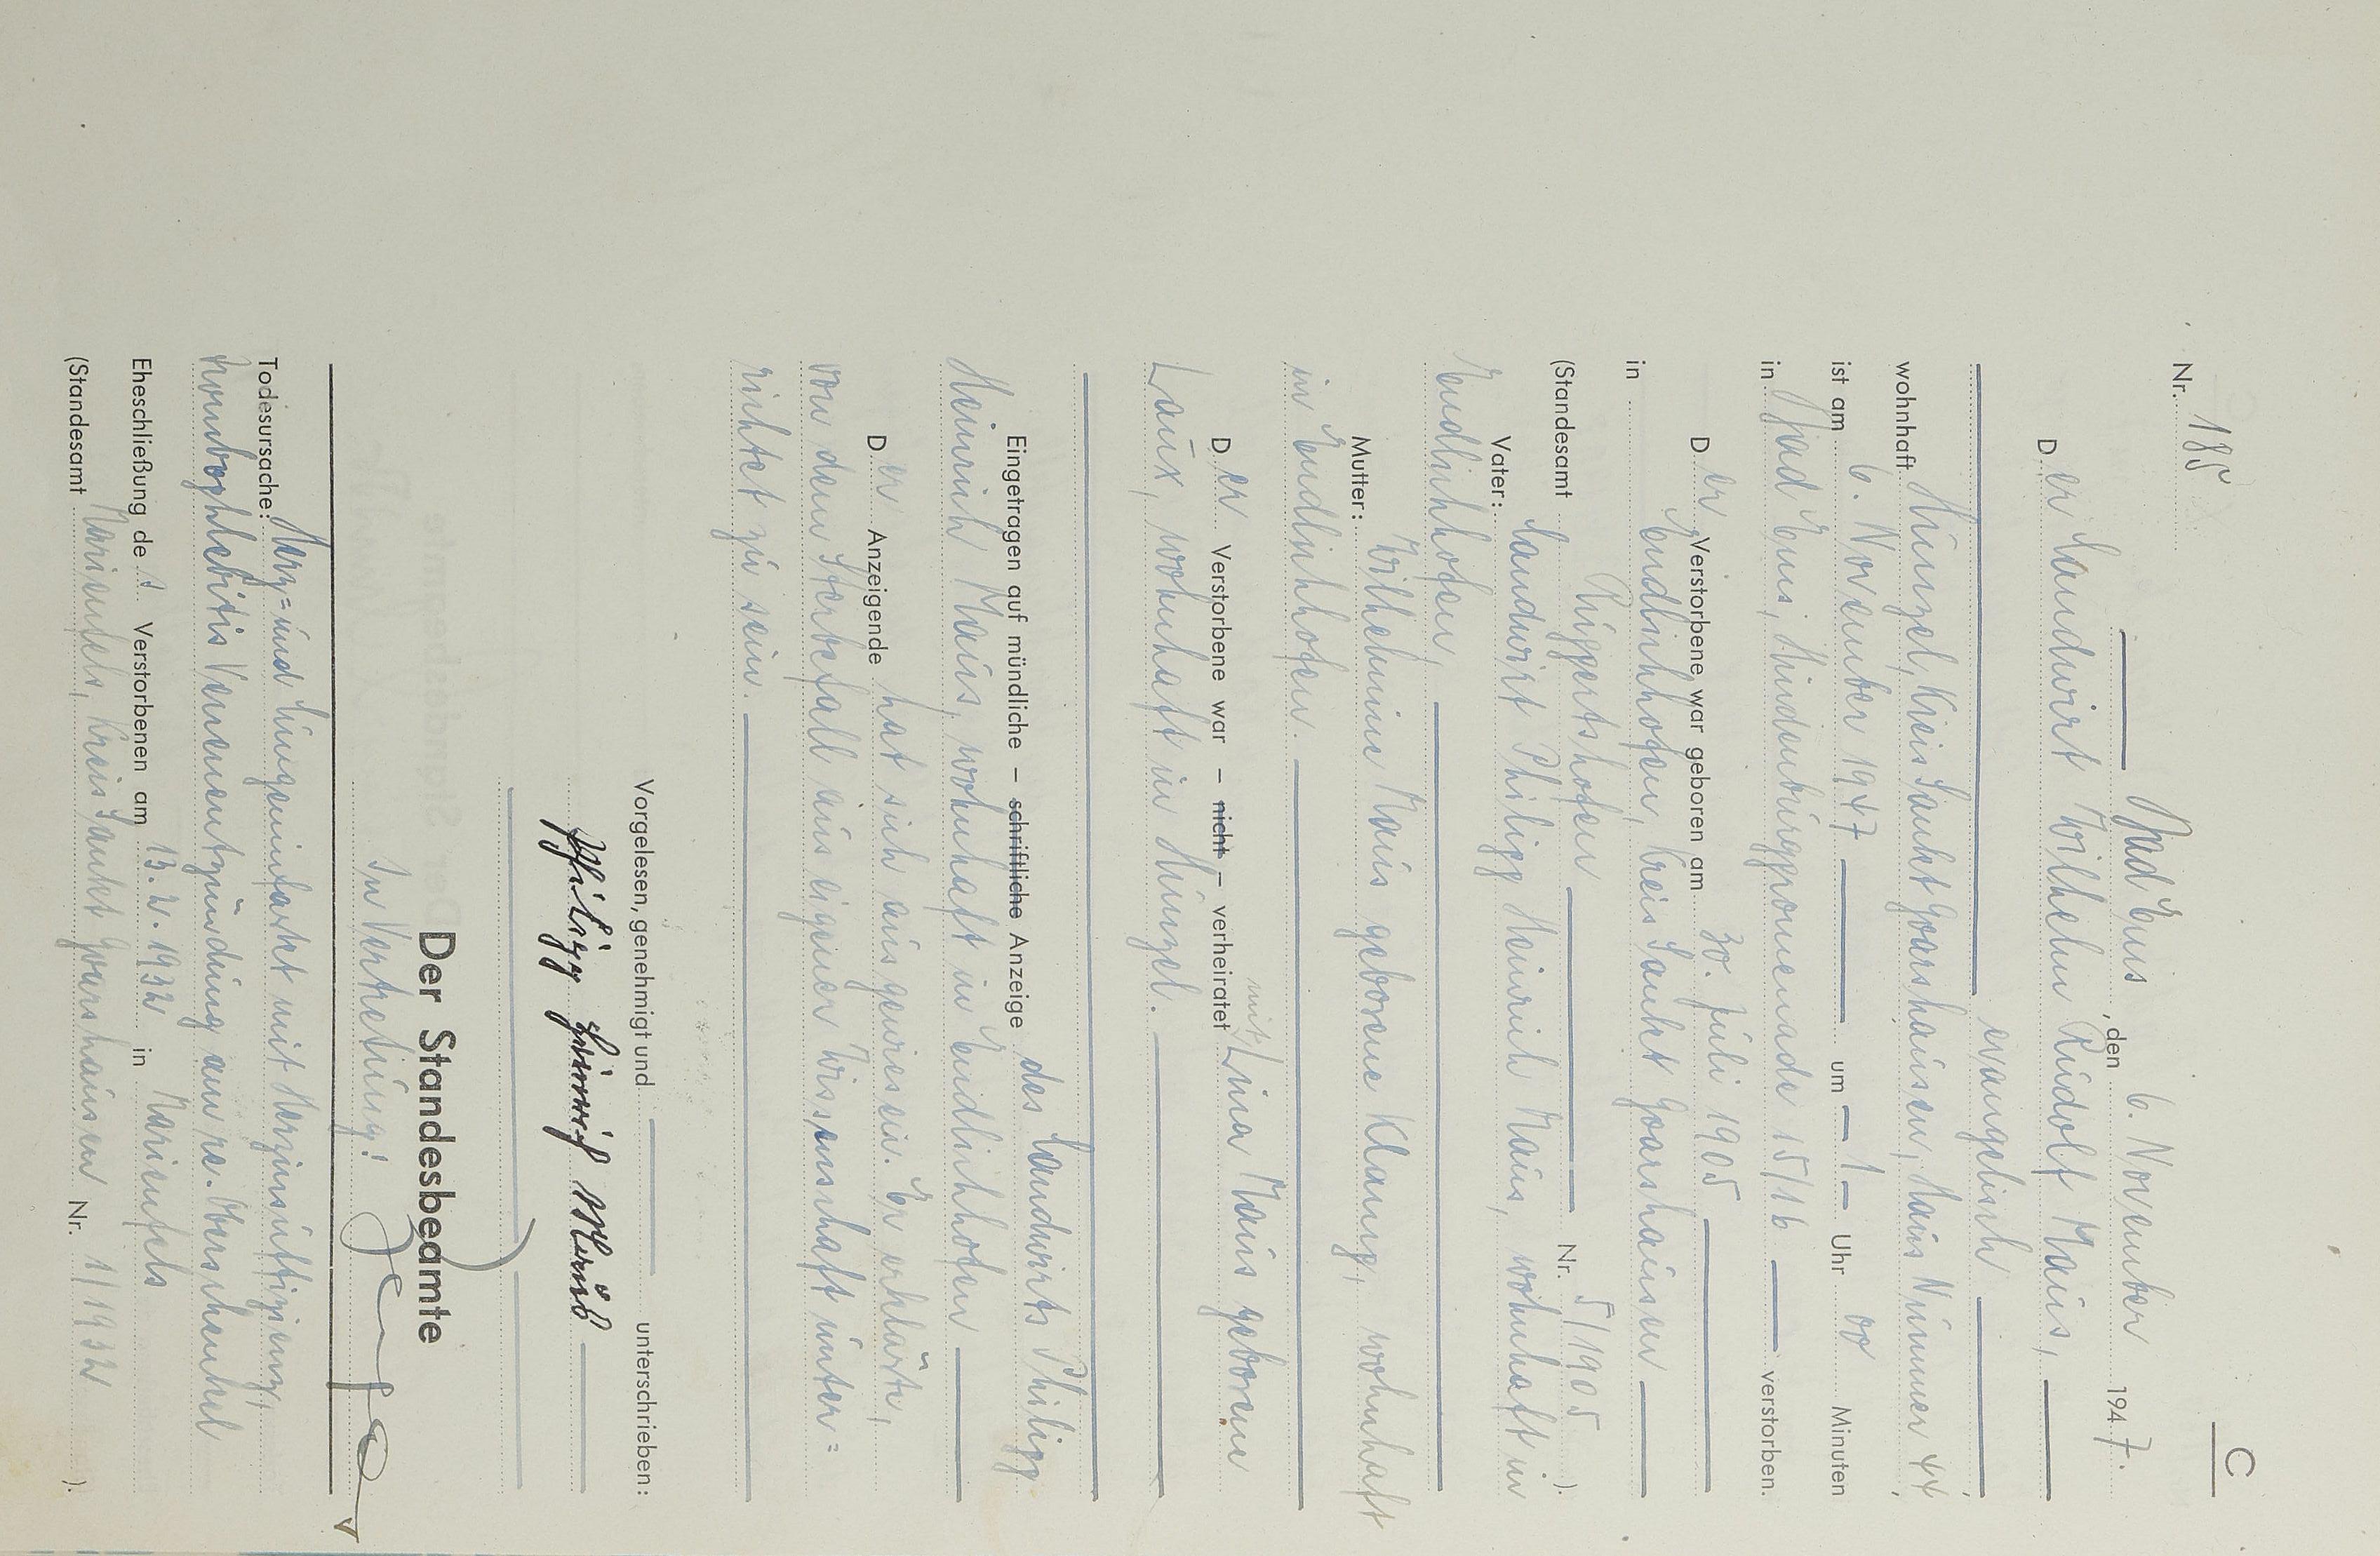 C
Nr. 185
Bad Ems, den 6. November 1947.
Der Landwirt Wilhelm Rudolf Maus,
evangelisch
wohnhaft Hunzel, Kreis Sankt Goarshausen, Haus Nummer 44,
ist am 6. November 1947 um 1 Uhr 00 Minuten
in Bad Ems, Hindenburgpromenade 15/16 verstorben.
Der Verstorbene war geboren am 30. Juli 1905
in Endlichhofen, Kreis Sankt Goarshausen
(Standesamt Ruppertshofen Nr. 5/1905 ).
Vater: Landwirt Philipp Heinrich Maus, wohnhaft in
Endlichhofen,
Mutter: Wilhelmine Maus geborene Klamp, wohnhaft
in Endlichhofen.
Der Verstorbene war – nicht – verheiratet mit Lina Maus geborene
Laux, wohnhaft in Hunzel.
Eingetragen auf mündliche – schriftliche Anzeige des Landwirts Philipp
Heinrich Maus, wohnhaft in Endlichhofen
Der Anzeigende hat sich ausgewiesen. Er erklärte,
von dem Sterbefall aus eigener Wissenschaft unter=
richtet zu sein.
Vorgelesen, genehmigt und unterschrieben:
Philipp Heinrich Maus
Der Standesbeamte
In Vertretung:
Todesursache: Herz= und Lungeninfarkt mit Herzinsuffizienz,
Thrombophlebitis Venenentzündung am re. Oberschenkel
Eheschließung des Verstorbenen am 13.2.1932 in Marienfels
(Standesamt Marienfels, Kreis Sankt Goarshausen Nr. 1/1932 ).